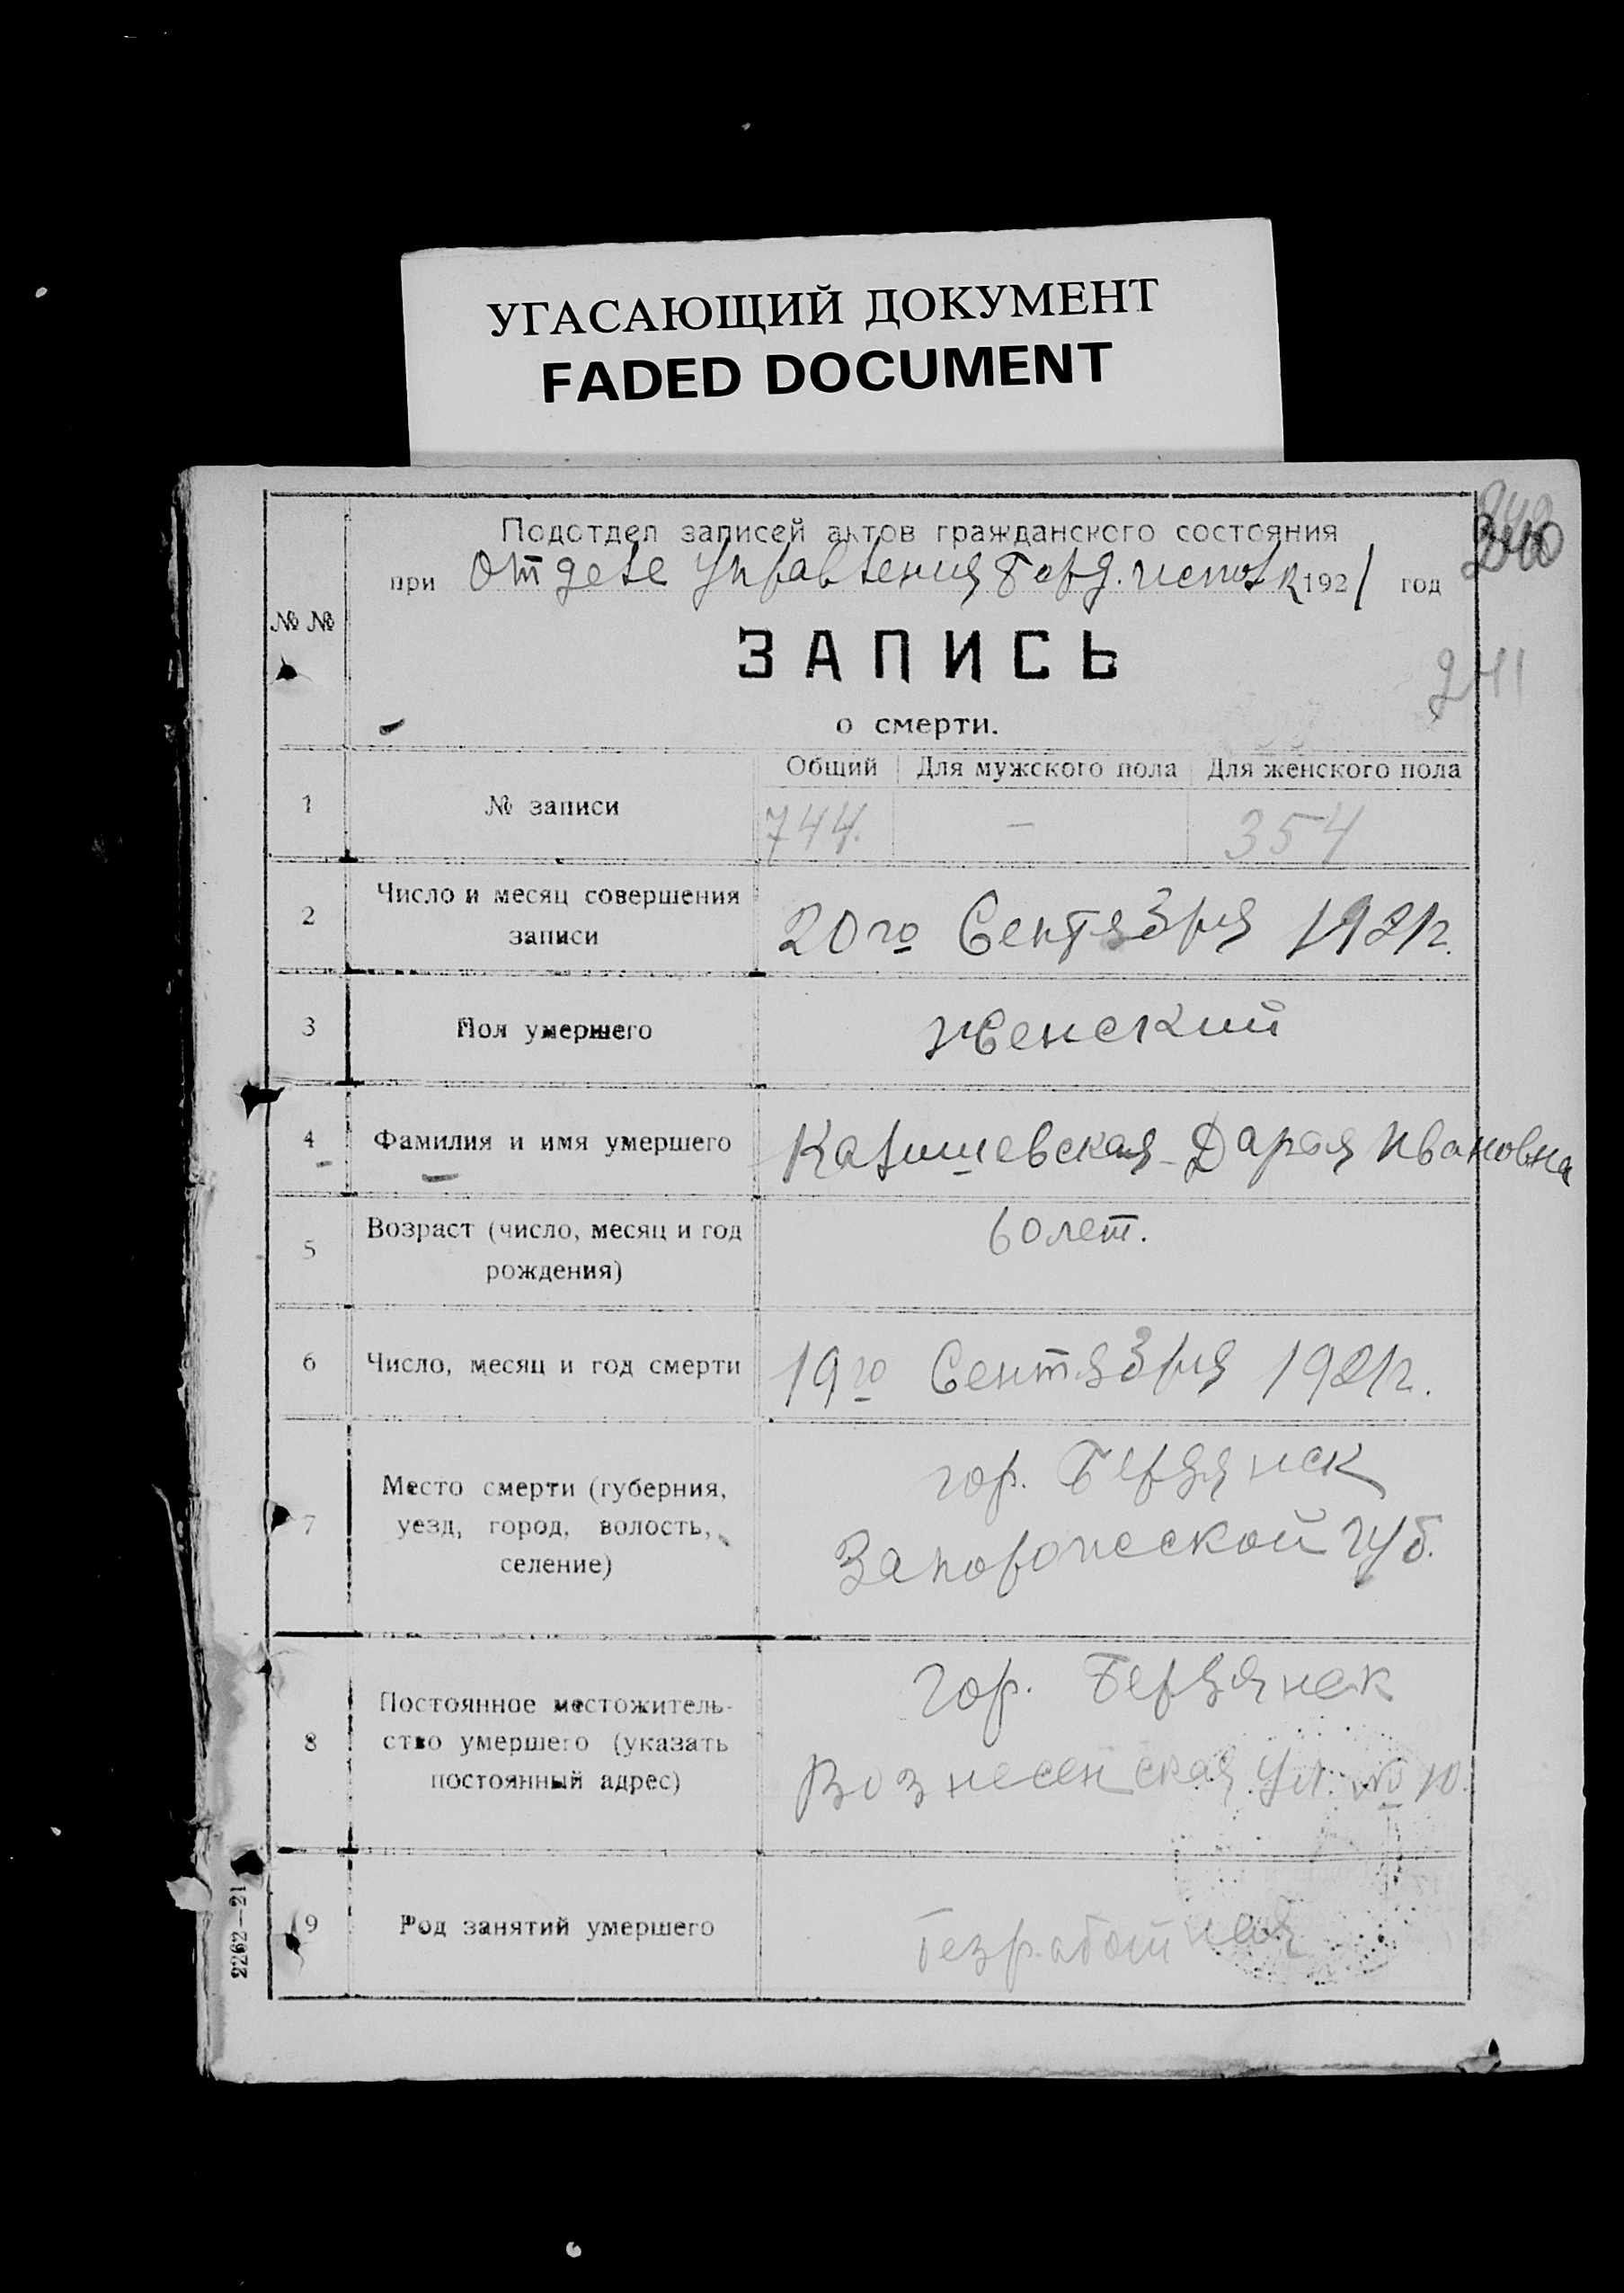 УГАСАЮЩИЙ ДОКУМЕНТ
FADED DOCUMENT
Подотдел записей актов гражданского состояния
при Отделе Управления Берд. 1921 год
240
241
№ №
ЗАПИСЬ
о смерти.
Общий Для мужского пола Для женского пола
1 № записи 744. — 354
2 Число и месяц совершения
записи 20го Сентября 1921г.
3 Пол умершего Женский
4 Фамилия и имя умершего Дарья Ивановна
5 Возраст (число, месяц и год
рождения) 60 лет.
6 Число, месяц и год смерти 19го Сентября 1921г.
7 Место смерти (губерния,
уезд, город, волость,
селение) гор. Бердянск
Запорожской губ.
8 Постоянное местожитель-
ство умершего (указать
постоянный адрес) гор. Бердянск
Вознесенская ул. № 10.
9 Род занятий умершего безработная
2262—21